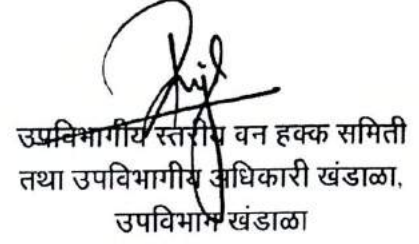 उपविभागीय स्तरीय वन हक्क समिती
तथा उपविभागीय अधिकारी खंडाळा,
उपविभाग खंडाळा